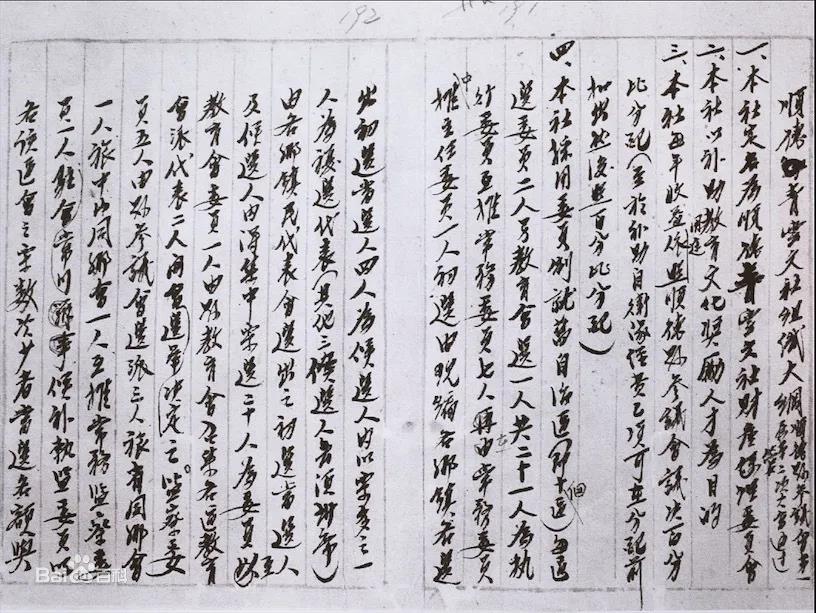 192
191
順德青雲文社組織大綱 順德縣參議會第一屆第二次大會通過
一、本社定名為順德青雲文社財產管理委員會
二、本社以補助教育文化獎勵人才為目的
三、本社每年收益用途依照順德縣參議會議決百分
比分配(至於補助自衛隊經費乙項可在分配前
扣出然後照百分比分配)
四、本社採用委員制就舊自治區(即十區)每區
選委員二人另教育會選一人共二十一人為執
行委員互推常務委員七人再由常務委員中
推主任委員一人初選由現屬各鄉鎮各選
出初選當選人四人為候選人內以票貴之一
人為複選代表(其他三候選人另須附帶)
由各鄉鎮民代表會選出之初選當選人
及候選人由區集中票選二十人為委員以
教育會委員一人由縣教育會召集各區教育
會派代表二人開會選舉決定之監察委
員五人由縣參議會選派三人旅省同鄉會
一人旅中山同鄉會一人互推常務監察委
員一人駐會常川辦事候補執監委員以
各該區會之票數次少者當選名額與
Baidu百科